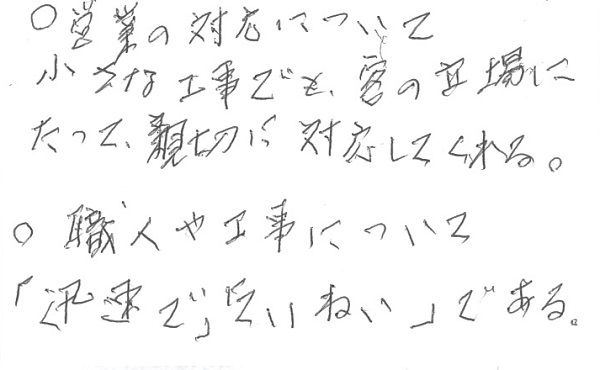 ○営業の対応について
小さな工事でも、客の立場に
たって、親切に対応してくれる。
○職人や工事について
「迅速で」「ていねい」である。